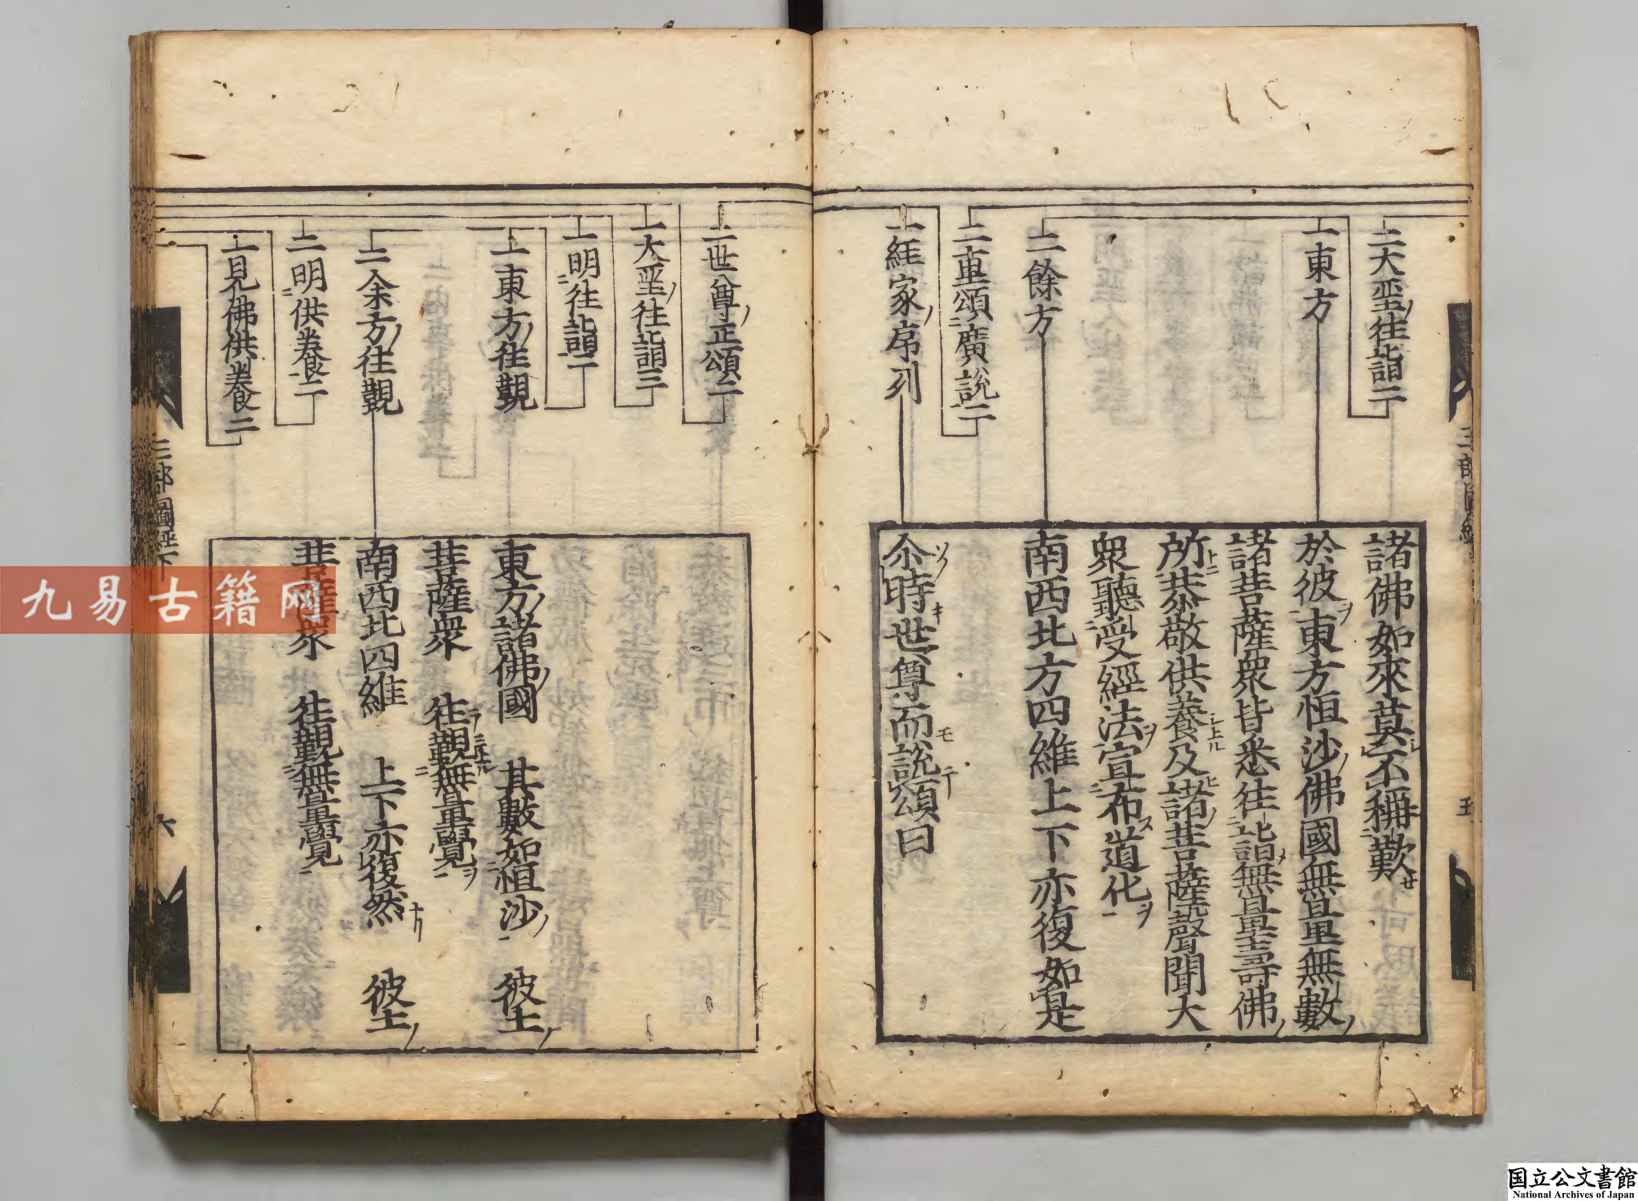 二大聖往詣二
一東方
二餘方
二重頌廣說二
一経家序列
諸佛如來莫不稱歎
於彼東方恒沙佛國無量無數
諸菩薩衆皆悉往詣無量壽佛
所恭敬供養及諸菩薩聲聞大
衆聽受經法宣布道化
南西北方四維上下亦復如是
尒時世尊而說頌曰
一世尊正頌二
一大聖往詣三
一明往詣二
一東方往觀
二余方往觀
二明供養二
一見佛供養二
東方諸佛國　其數如恒沙　彼土
菩薩衆　往觀無量覺
南西北四維　上下亦復然　彼土
菩薩衆　往觀無量覺
三部圖經下
六
五
九易古籍网
国立公文書館
National Archives of Japan